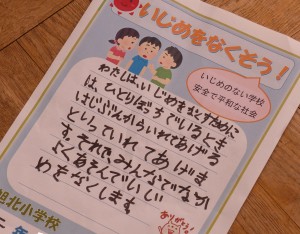 いじめをなくそう!
いじめのない学校
安全で平和な社会
わたしは、いじめをなくすために
は、ひとりぼっちでいる人を
はじぶんからいれてあげる
といっていれてあげま
す。それで、みんなでなか
よくあそんでいじ
めをなくします。
ありがとう!
旭北小学校
二年